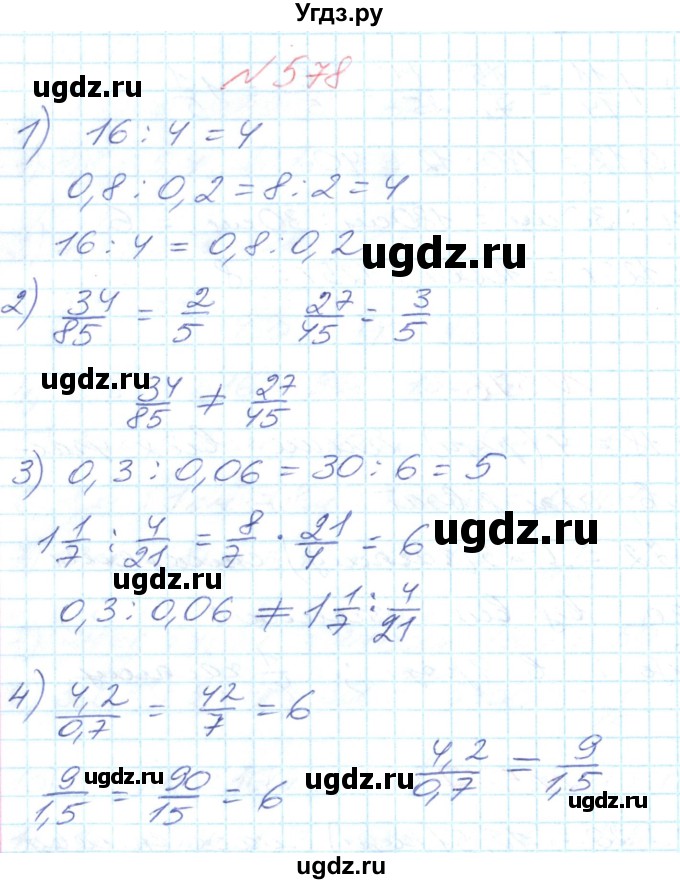 Угдз.ру
№578
ugdz.ru
1) 16 : 4 = 4
0,8 : 0,2 = 8 : 2 = 4
16 : 4 = 0,8 : 0,2
ugdz.ru
2) 34/85 = 2/5 27/45 = 3/5
ugdz.ru
34/85 ≠ 27/45
3) 0,3 : 0,06 = 30 : 6 = 5
1 1/7 : 4/21 = 8/7 · 21/4 = 6
ugdz.ru
ugdz.ru
0,3 : 0,06 ≠ 1 1/7 : 4/21
4) 4,2/0,7 = 42/7 = 6
9/1,5 = 90/15 = 6 4,2/0,7 = 9/1,5
ugdz.ru
ugdz.ru
ugdz.ru
ugdz.ru